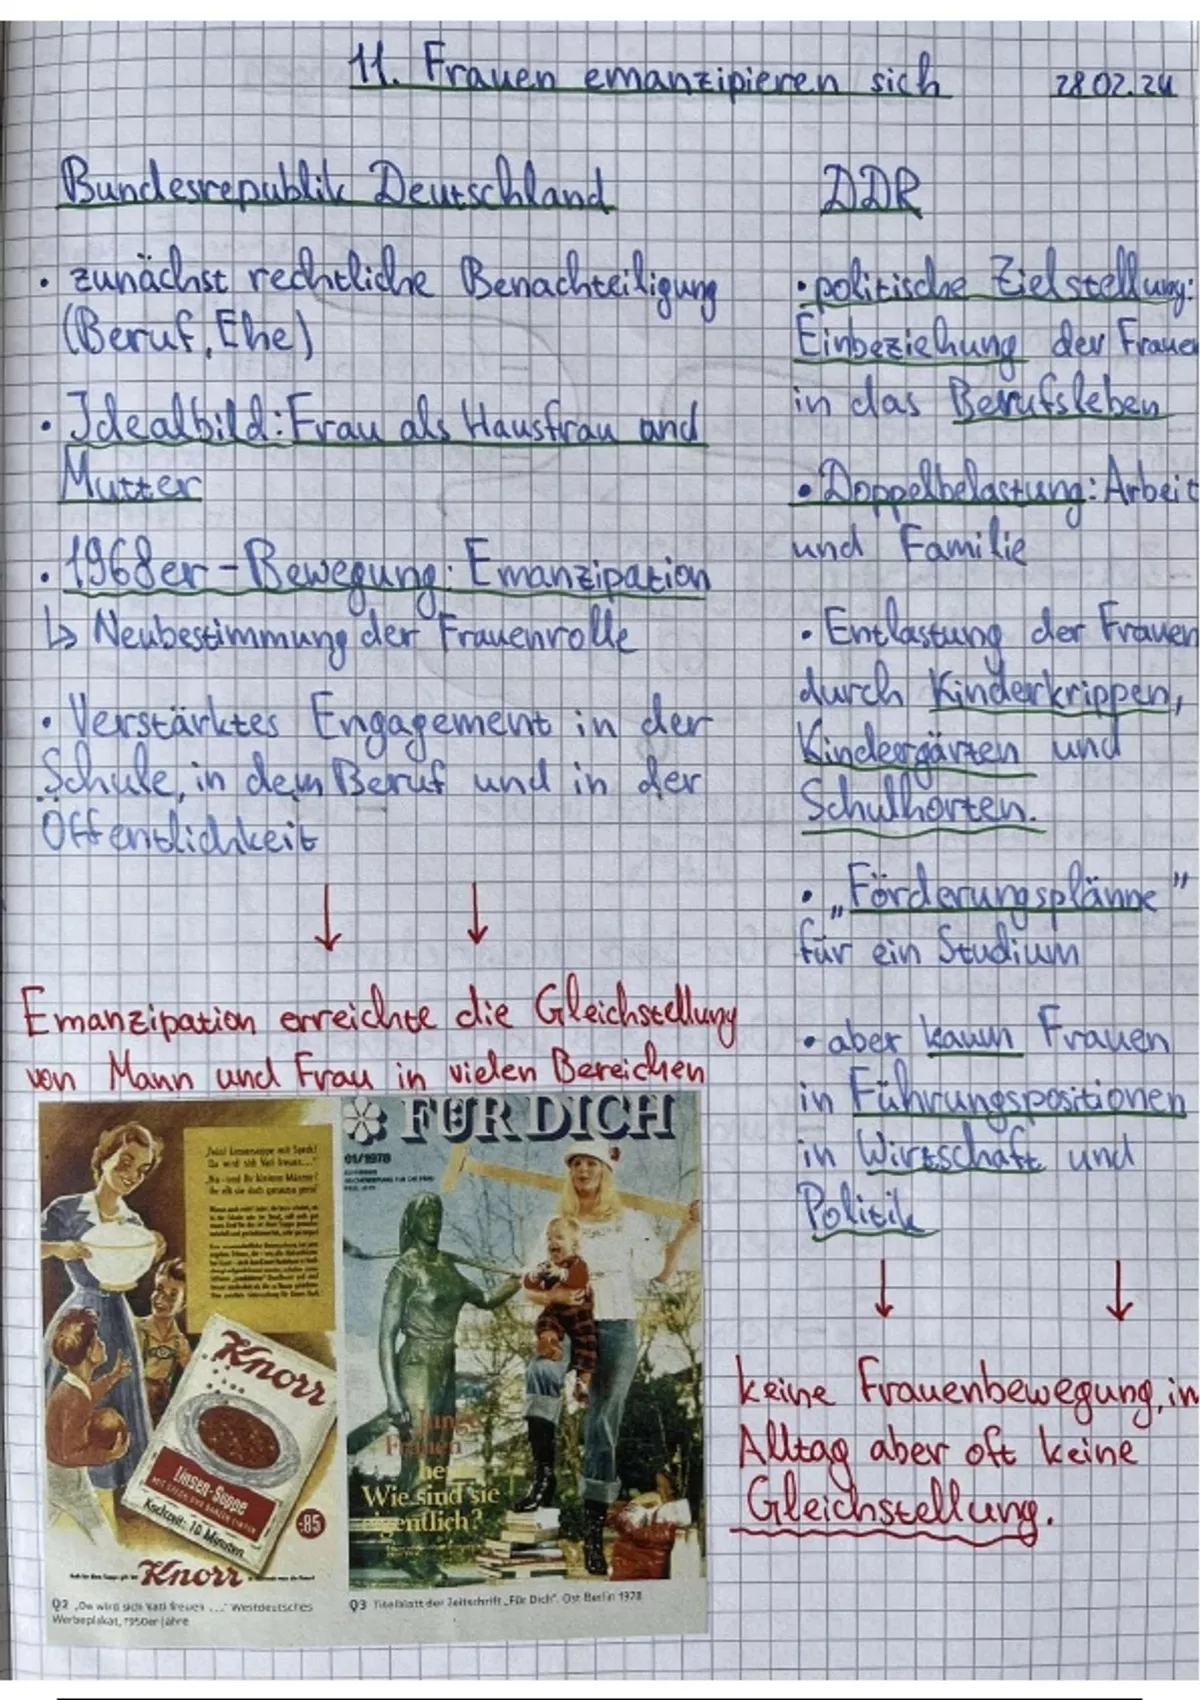 11. Frauen emanzipieren sich
28.02.24
Bundesrepublik Deutschland
• zunächst rechtliche Benachteiligung
(Beruf, Ehe)
• Idealbild: Frau als Hausfrau and
Mutter
• 1968er-Bewegung: Emanzipation
↳ Neubestimmung der Frauenrolle
• Verstärktes Engagement in der
Schule, in dem Beruf und in der
Öffentlichkeit
↓ ↓
Emanzipation erreichte die Gleichstellung
von Mann und Frau in vielen Bereichen
DDR
• politische Zielstellung:
Einbeziehung der Frauen
in das Berufsleben
• Doppelbelastung: Arbeit
und Familie
• Entlastung der Frauen
durch Kinderkrippen,
Kindergärten und
Schulhorten.
• „Förderungspläne"
für ein Studium
• aber kaum Frauen
in Führungspositionen
in Wirtschaft und
Politik
↓ ↓
keine Frauenbewegung, in
Alltag aber oft keine
Gleichstellung.
Knorr
Linsen-Suppe
Kochzeit: 10 Minuten
-85
Knorr
FÜR DICH
01/1978
Junge
Frauen
Wie sind sie
eigentlich?
Q2 „Da wird sich Vati freuen ..." Westdeutsches
Werbeplakat, 1950er Jahre
Q3 Titelblatt der Zeitschrift „Für Dich". Ost-Berlin 1978